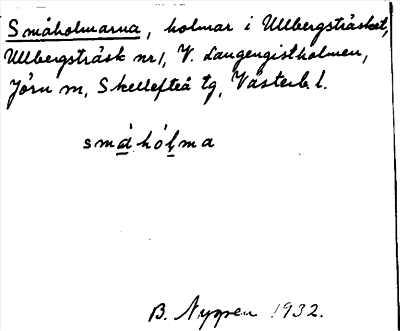 Småholmarna, holmar i Ullbergsträsket,
Ullbergsträsk nr 1, V. Langengistholmen,
Jörn sn, Skellefteå tg, Västerb l.
småhólma
B. Nygren 1932.